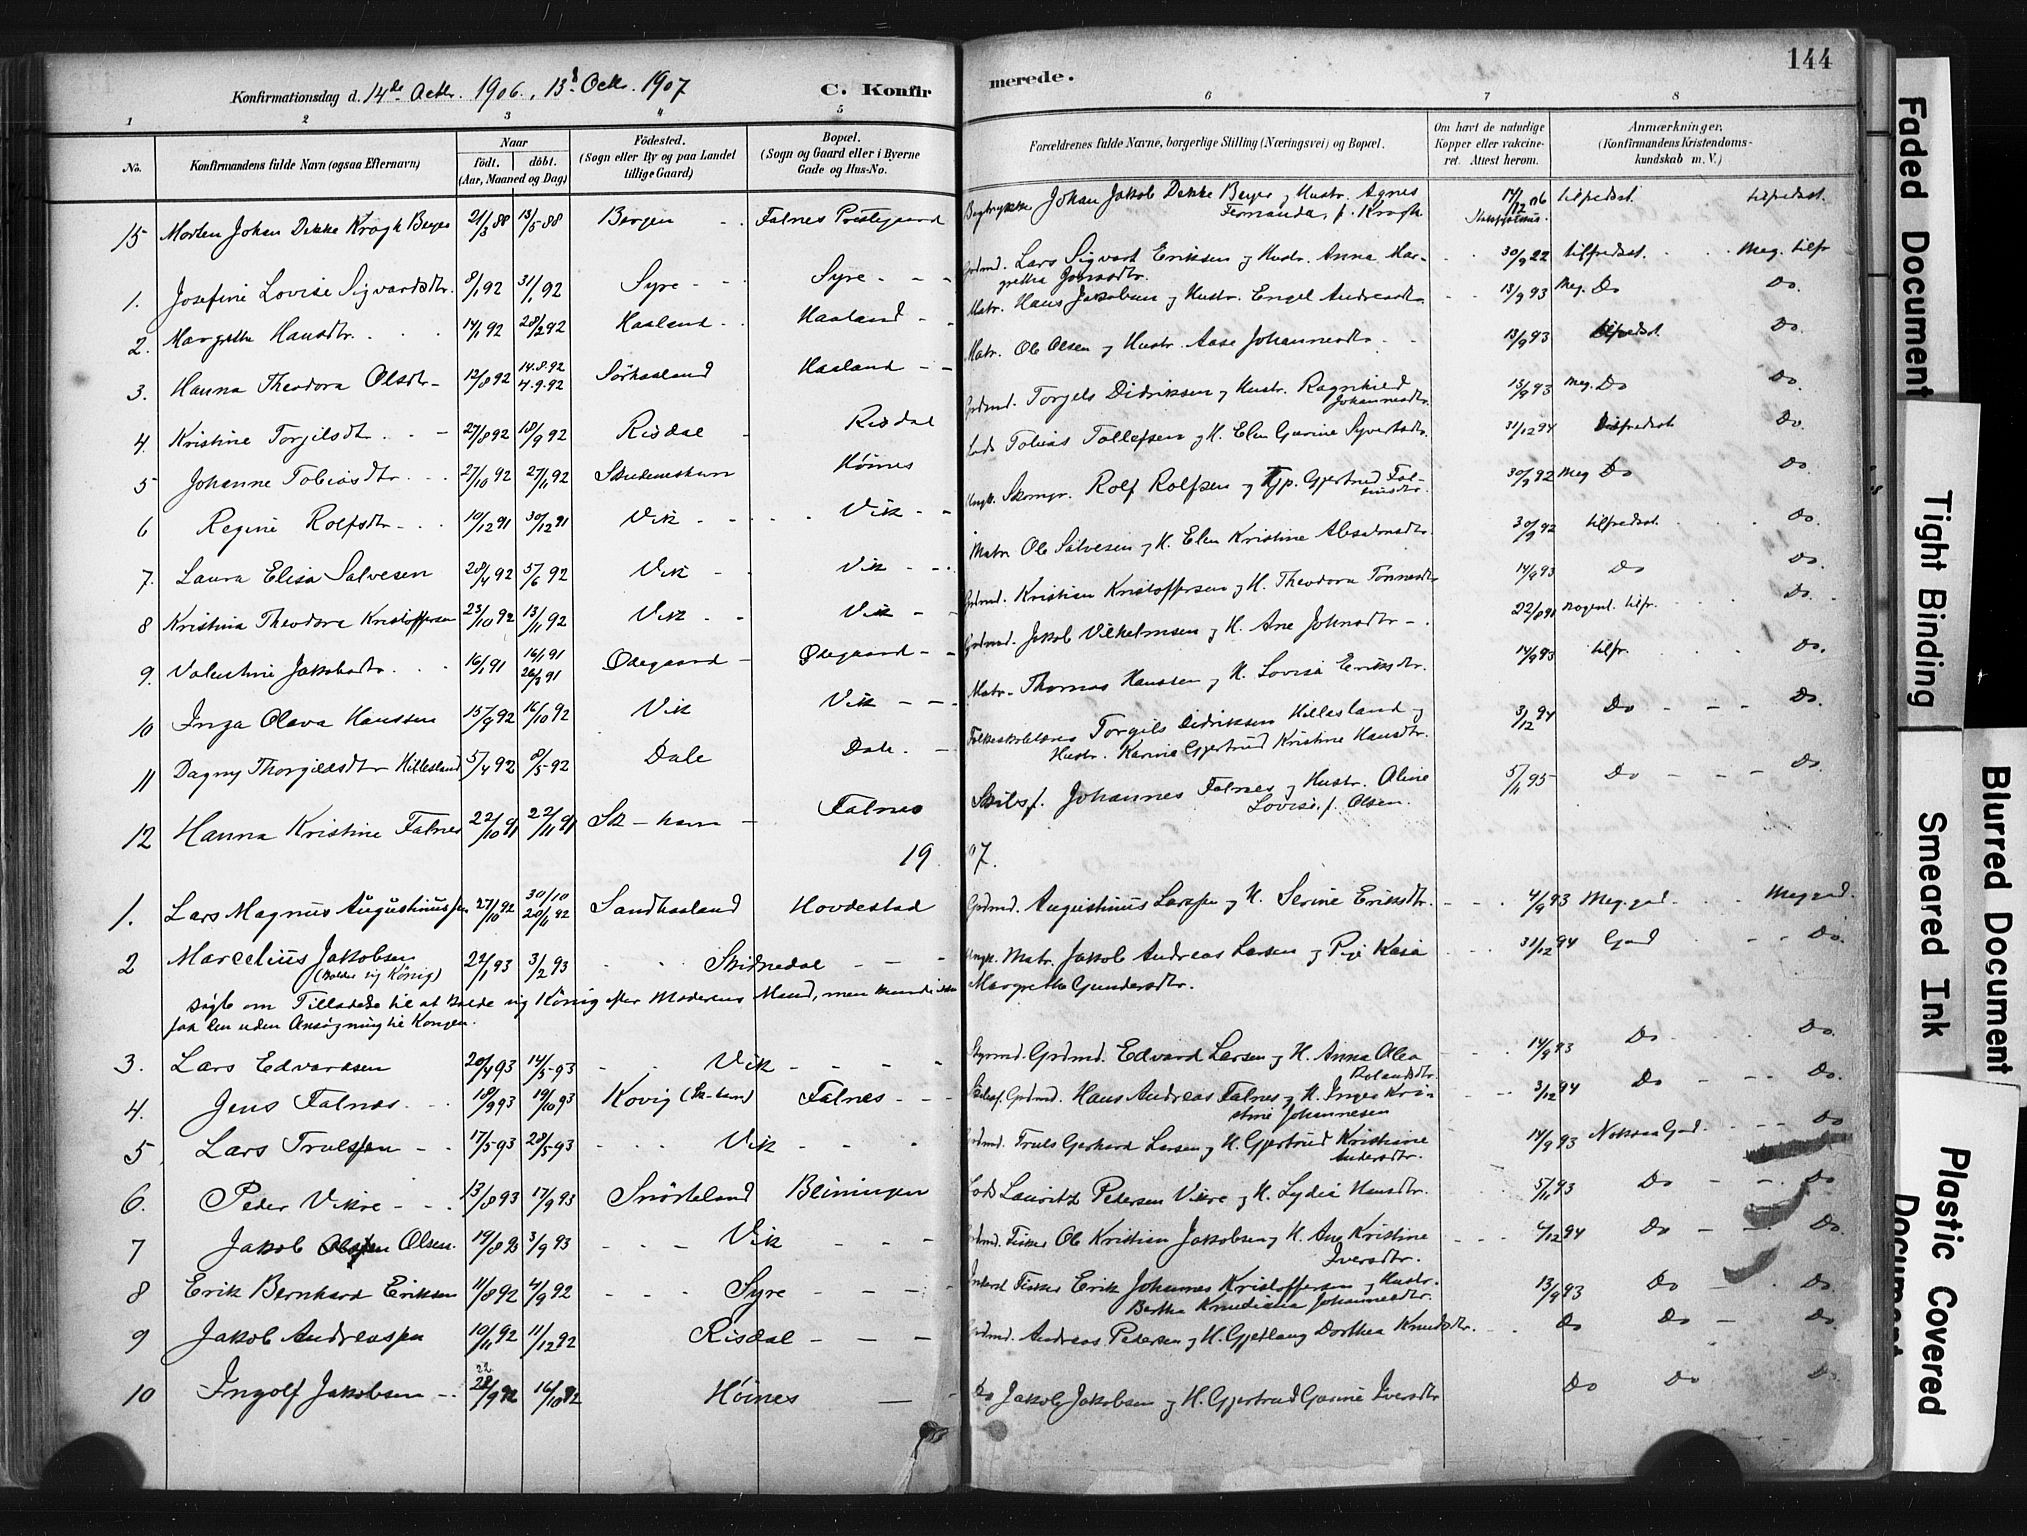 144
Konfirmationsdag d. 14de Octbr. 1906, 13d Octbr. 1907 C. Konfirmerede.
1 2 3 4 5 6 7 8
No.
Konfirmandens fulde Navn (ogsaa Efternavn)
Naar
født. døbt.
(Aar, Maaned og Dag)
Fødested.
(Sogn eller By og paa Landet
tillige Gaard)
Bopæl.
(Sogn og Gaard eller i Byerne
Gade og Hus-No.
Forældrenes fulde Navne, borgerlige Stilling (Næringsvei) og Bopæl.
Om havt de naturlige
Kopper eller vaccine-
ret. Attest herom.
Anmærkninger.
(Konfirmandens Kristendoms-
kundskab m. V.)
15 Morten Johan Dekke Krogh Beyer 21/3 88 13/5 88 Bergen Falnes Prestegaard Johan Jakob Dekke Beyer og Hustr. Agnes Fernanda f. Krogh tilfredsst. tilfredsst.
1. Josefine Lovise Sigvardsdtr. 8/1 92 31/1 92 Syre Syre Grdmd. Lars Sigvart Eriksen og Hustr. Anna Mar-
grethe Jonasdtr. 30/9 22 tilfredsst. Meg. tilfr
2. Margrethe Hansdtr. 14/1 92 28/2 92 Haaland Haaland Matr. Hans Jakobsen og Hustr. Engel Andreasdtr. 13/9 93 Meg. Do Do.
3. Hanna Theodora Olsdtr 12/8 92 14.8.92
4.9.92 Sørhaaland Haaland Matr. Ole Olsen og Hustr. Aase Johannesdtr 13/9 93 tilfredsst. Do.
4. Kristine Torgilsdtr. 27/8 92 18/9 92 Risdal Risdal Grdmd. Torgels Didriksen og Hustr. Ragnhild
Johannesdtr. 13/9 93 Meg. Do Do.
5 Johanne Tobiasdtr. 27/10 92 27/11 92 Skudeneshavn Høines Lods Tobias Tollefsen og H. Elen Gurine Syvertsdtr. 31/12 94 tilfredsst Do.
6 Regine Rolfsdtr 10/12 91 30/12 91 Vik Vik Ungk. Skomgr. Rolf Rolfsen og Pp. Gjertrud Tal-
30/9 92 Meg Do Do.
7. Laura Elisa Salvesen 28/4 92 5/6 92 Vik Vik Matr. Ole Salvesen og H. Elen Kristine 30/9 92 tilfredsst. Do.
8 Kristina Theodora Kristoffersen 23/10 92 13/11 92 Vik Vik Grdmd. Kristian Kristoffersen og H. Theodora Tønnesdtr 14/9 93 Do Do.
9. Valentine Jakobsdtr. 16/1 91 16/1 91
26/3 91 Ødegaard Ødegaard Grdmd. Jakob Vilhelmsen og H. Ane Johnsdtr 22/8 91 Nogenl. tilfr. Do.
10 Inga Olava Hanssen 15/9 92 16/10 92 Vik Vik Matr. Thomas Hanssen og H. Lovise Eriksdtr. 14/9 93 tilfr. Do.
11 Dagny Thorgilsdtr Hillesland 5/4 92 8/5 92 Dale Dale. Folkeskolelærer Torgils Didriksen Hillesland og
Hustr. Karine Gjertrud Kristine Hansdtr. 3/12 94 Do Do.
12 Hanna Kristine Falnes 22/10 91 22/11 91 Sk-havn Falnes Skibsf. Johannes Falnes og Hustr. Oline
Lovise f. Olsen. 5/11 95 Do Do.
1907.
1. Lars Magnus Augustinussen 27/10 92 30/10
20/11 92 Sandhaaland Hovdestad Grdmd. Augustinus Larssen og H. Serine Eriksdtr. 4/9 93 Meg. god. Meg god.
2 Marcelius Jakobsen
(kalder sig König) 22/1 93 3/2 93 Skidnedal Ungk. Matr. Jakob Andreas Larsen og Pige Kasia
Margrethe Gundersdtr. 31/12 94 God Do.
søgte om Tilladelse til at kalde sig König efter Moderens Mand, men kunde ikke
faa den uden Ansøgning til Kongen.
3. Lars Edvardsen 20/4 93 14/5 93 Vik Grdmd. Edvard Larsen og H. Anna Olea
Rolandsdtr. 14/9 93 Do Do.
4. Jens Falnes. 18/9 93 19/10 93 Kovig (Sk-havn) Falnes Skibsf. Grdmd. Hans Andreas Falnes og H. Inger Kri-
stine Johannesen 3/12 94 Do Do.
5 Lars Trulssen 17/5 93 28/5 93 Vik Grdmd. Truls Gerhard Larsen og H. Gjertrud Kristiane
Andersdtr. 14/9 93 Noksaa God. Do
6. Peder Vikre 13/8 93 17/9 93 Snørteland Lods Lauritz Pedersen Vikre og H. Lydia Hansdtr. 5/11 93 Do Do
7 Jakob Olsen. 19/8 93 3/9 93 Vik Grdmd. Fisker Ole Kristian Jakobsen og H. Ane Kristine
Iversdtr. 4/12 94 Do Do.
8 Erik Bernhard Eriksen 11/8 92 4/9 92 Syre Inderst Fisker Erik Johannes Kristoffersen og Hustr.
Berthe Knudiane Johannesdtr. 13/9 93 Do Do.
9 Jakob Andreassen 10/11 92 11/12 92 Risdal Grdmd. Andreas Pedersen og H. Gjetlaug Dorthea Knudsdtr. Do Do Do.
10 Ingolf Jakobsen 22/9 92 16/10 92 Høines Do Jakob Jakobsen og H. Gjertrud Gurine Iversdtr Do Do Do
Faded Document
Tight Binding
Blurred Document
Smeared Ink
Plastic Covered
Document